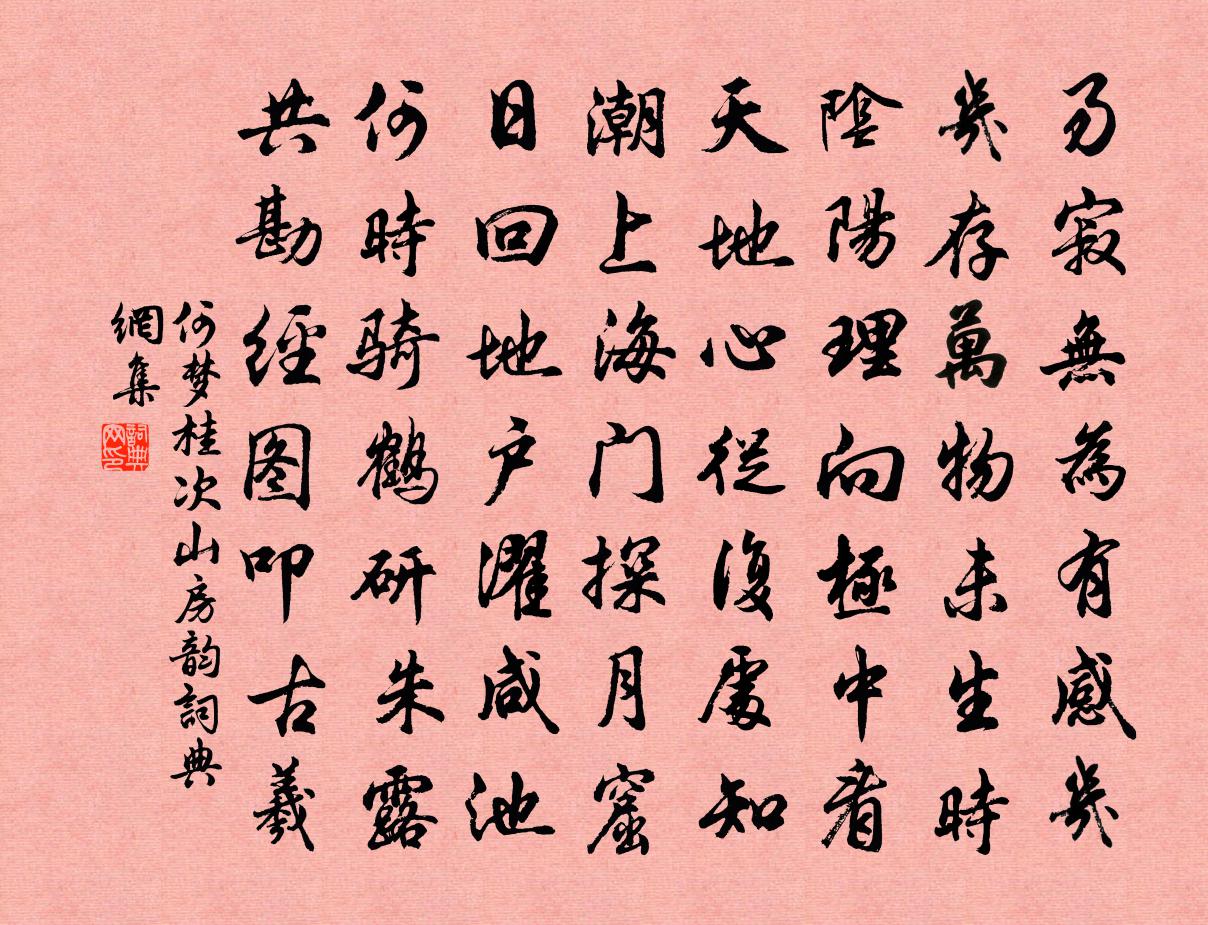 易寂無為有感幾
幾存萬物未生時
陰陽理向極中看
天地心從復處知
潮上海门探月窟
日回地户濯咸池
何時骑鹤研朱露
共勘經图叩古羲
何梦桂次山房韵詞典
網集
詞典网印